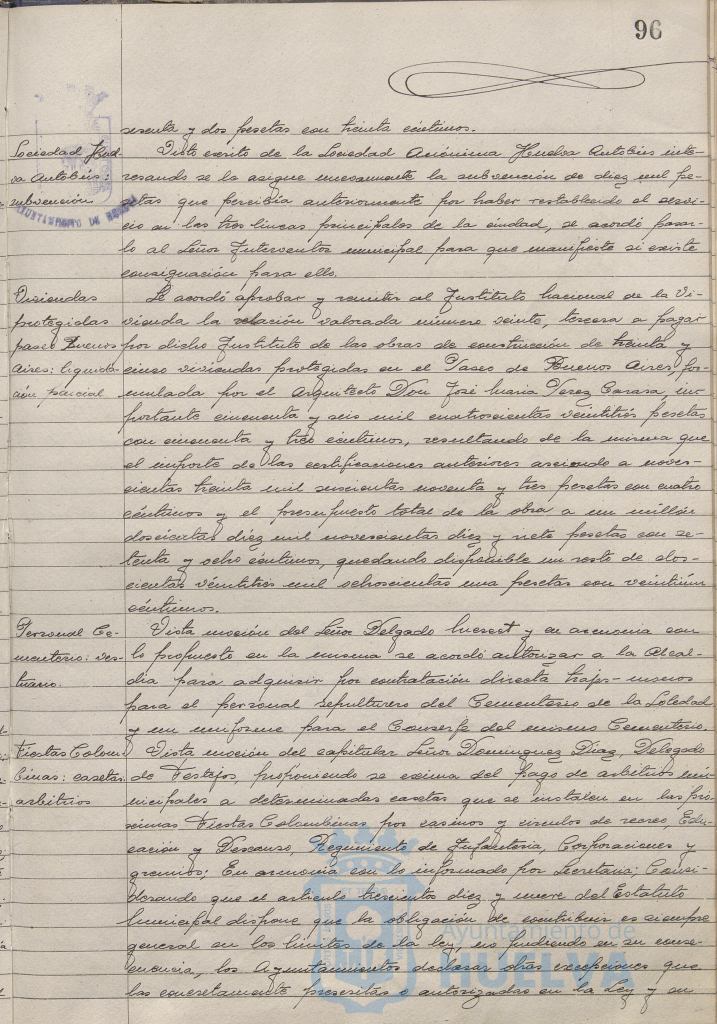 96
sesenta y dos pesetas con treinta céntimos.
Sociedad Huel-
va Autobús:
subvención
AYUNTAMIENTO DE HUELVA
Visto escrito de la Sociedad Anónima Huelva Autobús inte-
resando se le asigne nuevamente la subvención de diez mil pe-
setas que percibía anteriormente por haber restablecido el servi-
cio en las tres líneas principales de la ciudad, se acordó pasar-
lo al Señor Interventor municipal para que manifieste si existe
consignación para ello.
Viviendas
protegidas
paseo Buenos
Aires: liquida-
ción parcial
Se acordó aprobar y remitir al Instituto Nacional de la Vi-
vienda la relación valorada número veinte, tercera a pagar
por dicho Instituto de las obras de construcción de treinta y
cinco viviendas protegidas en el Paseo de Buenos Aires, for-
mulada por el Arquitecto Don José María Perez Carasa, im-
portante cincuenta y seis mil cuatrocientas veintitrés pesetas
con cincuenta y tres céntimos, resultando de la misma que
el importe de las certificaciones anteriores asciende a nove-
cientas treinta mil seiscientas noventa y tres pesetas con cuatro
céntimos y el presupuesto total de la obra a un millón
doscientas diez mil novecientas diez y siete pesetas con se-
tenta y ocho céntimos, quedando disponible un resto de dos-
cientas veintitrés mil ochocientas una pesetas con veintiún
céntimos.
Personal Ce-
menterio: ves-
tuario.
Vista moción del Señor Delgado y en armonía con
lo propuesto en la misma se acordó autorizar a la Alcal-
día para adquirir por contratación directa trajes-monos
para el personal sepulturero del Cementerio de la Soledad
y un uniforme para el Conserje del mismo Cementerio.
Fiestas Colom-
binas: casetas
arbitrios
Vista moción del capitular Señor Dominguez Diaz, Delegado
de Festejos, proponiendo se exima del pago de arbitrios mu-
nicipales a determinadas casetas que se instalen en las pró-
ximas Fiestas Colombinas por casinos y círculos de recreo, Edu-
cación y Descanso, Regimiento de Infantería, Corporaciones y
gremios; En armonía con lo informado por Secretaría; Consi-
derando que el artículo trescientos diez y nueve del Estatuto
Municipal dispone que la obligación de contribuir es siempre
general en los límites de la ley, no pudiendo en su conse-
cuencia, los Ayuntamientos declarar otras excepciones que
las concretamente prescritas o autorizadas en la Ley y en
Ayuntamiento de
HUELVA